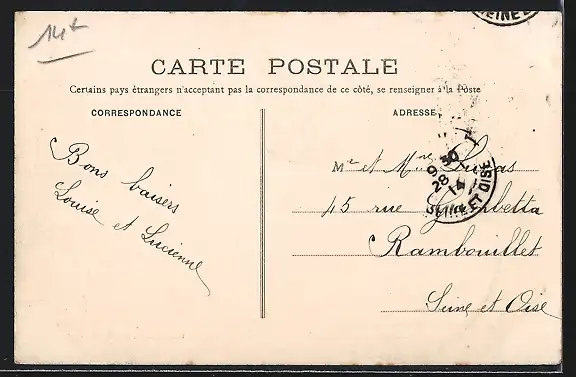 14t
EINE
CARTE POSTALE
Certains pays étrangers n'acceptant pas la correspondance de ce côté, se renseigner à la Poste
CORRESPONDANCE
ADRESSE
Bons baisers
Louise et Lucienne
Mr et Mme
45 rue
Rambouillet
Seine et Oise
9 30
28 1
14
SEINE ET OISE